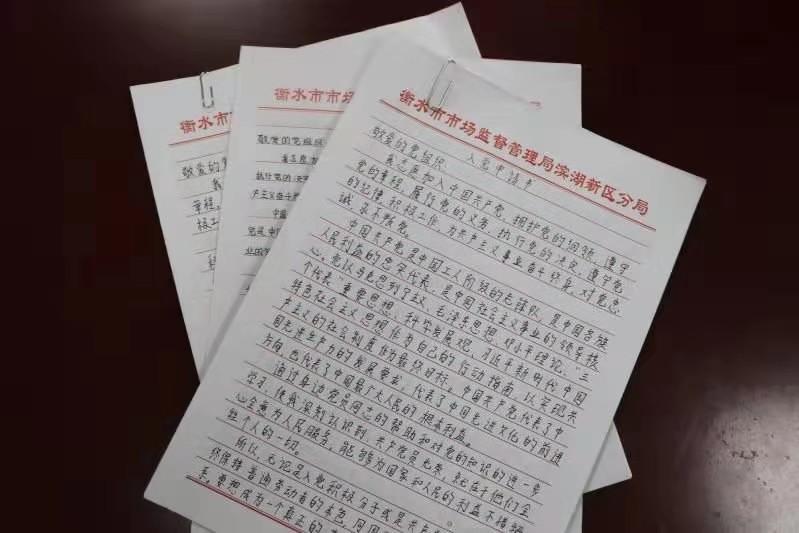 衡水市市场监督管理局滨湖新区分局
入党申请书
敬爱的党组织：
我志愿加入中国共产党，拥护党的纲领，遵守
党的章程，履行党的义务，执行党的决定，遵守党
的纪律，积极工作，为共产主义事业奋斗终身，对党忠
诚，永不叛党。
中国共产党是中国工人阶级的先锋队，是中国各族
人民利益的忠实代表，是中国社会主义事业的领导核
心。党以马克思列宁主义、毛泽东思想、邓小平理论、“三
个代表”重要思想、科学发展观、习近平新时代中国
特色社会主义思想作为自己的行动指南，以实现共
产主义的社会制度作为最终目标。中国共产党代表了中
国先进生产力的发展要求，代表了中国先进文化的前进
方向，也代表了中国最广大人民的根本利益。
通过身边党员同志的帮助和对党的知识的进一步
学习，使我深刻认识到，共产党员光荣，就在于他们全
心全意为人民服务，能够为国家和人民的利益不惜牺
牲个人的一切。
所以，无论是入党积极分子或是共产
保持普通劳动者的本色，同
要想成为一个真正的
衡水市市场
敬爱的党组织
我志愿加
执行党的决定
产主义奋斗终
中国
党是中
业的
衡水市
敬爱的党
我
章程，
极工